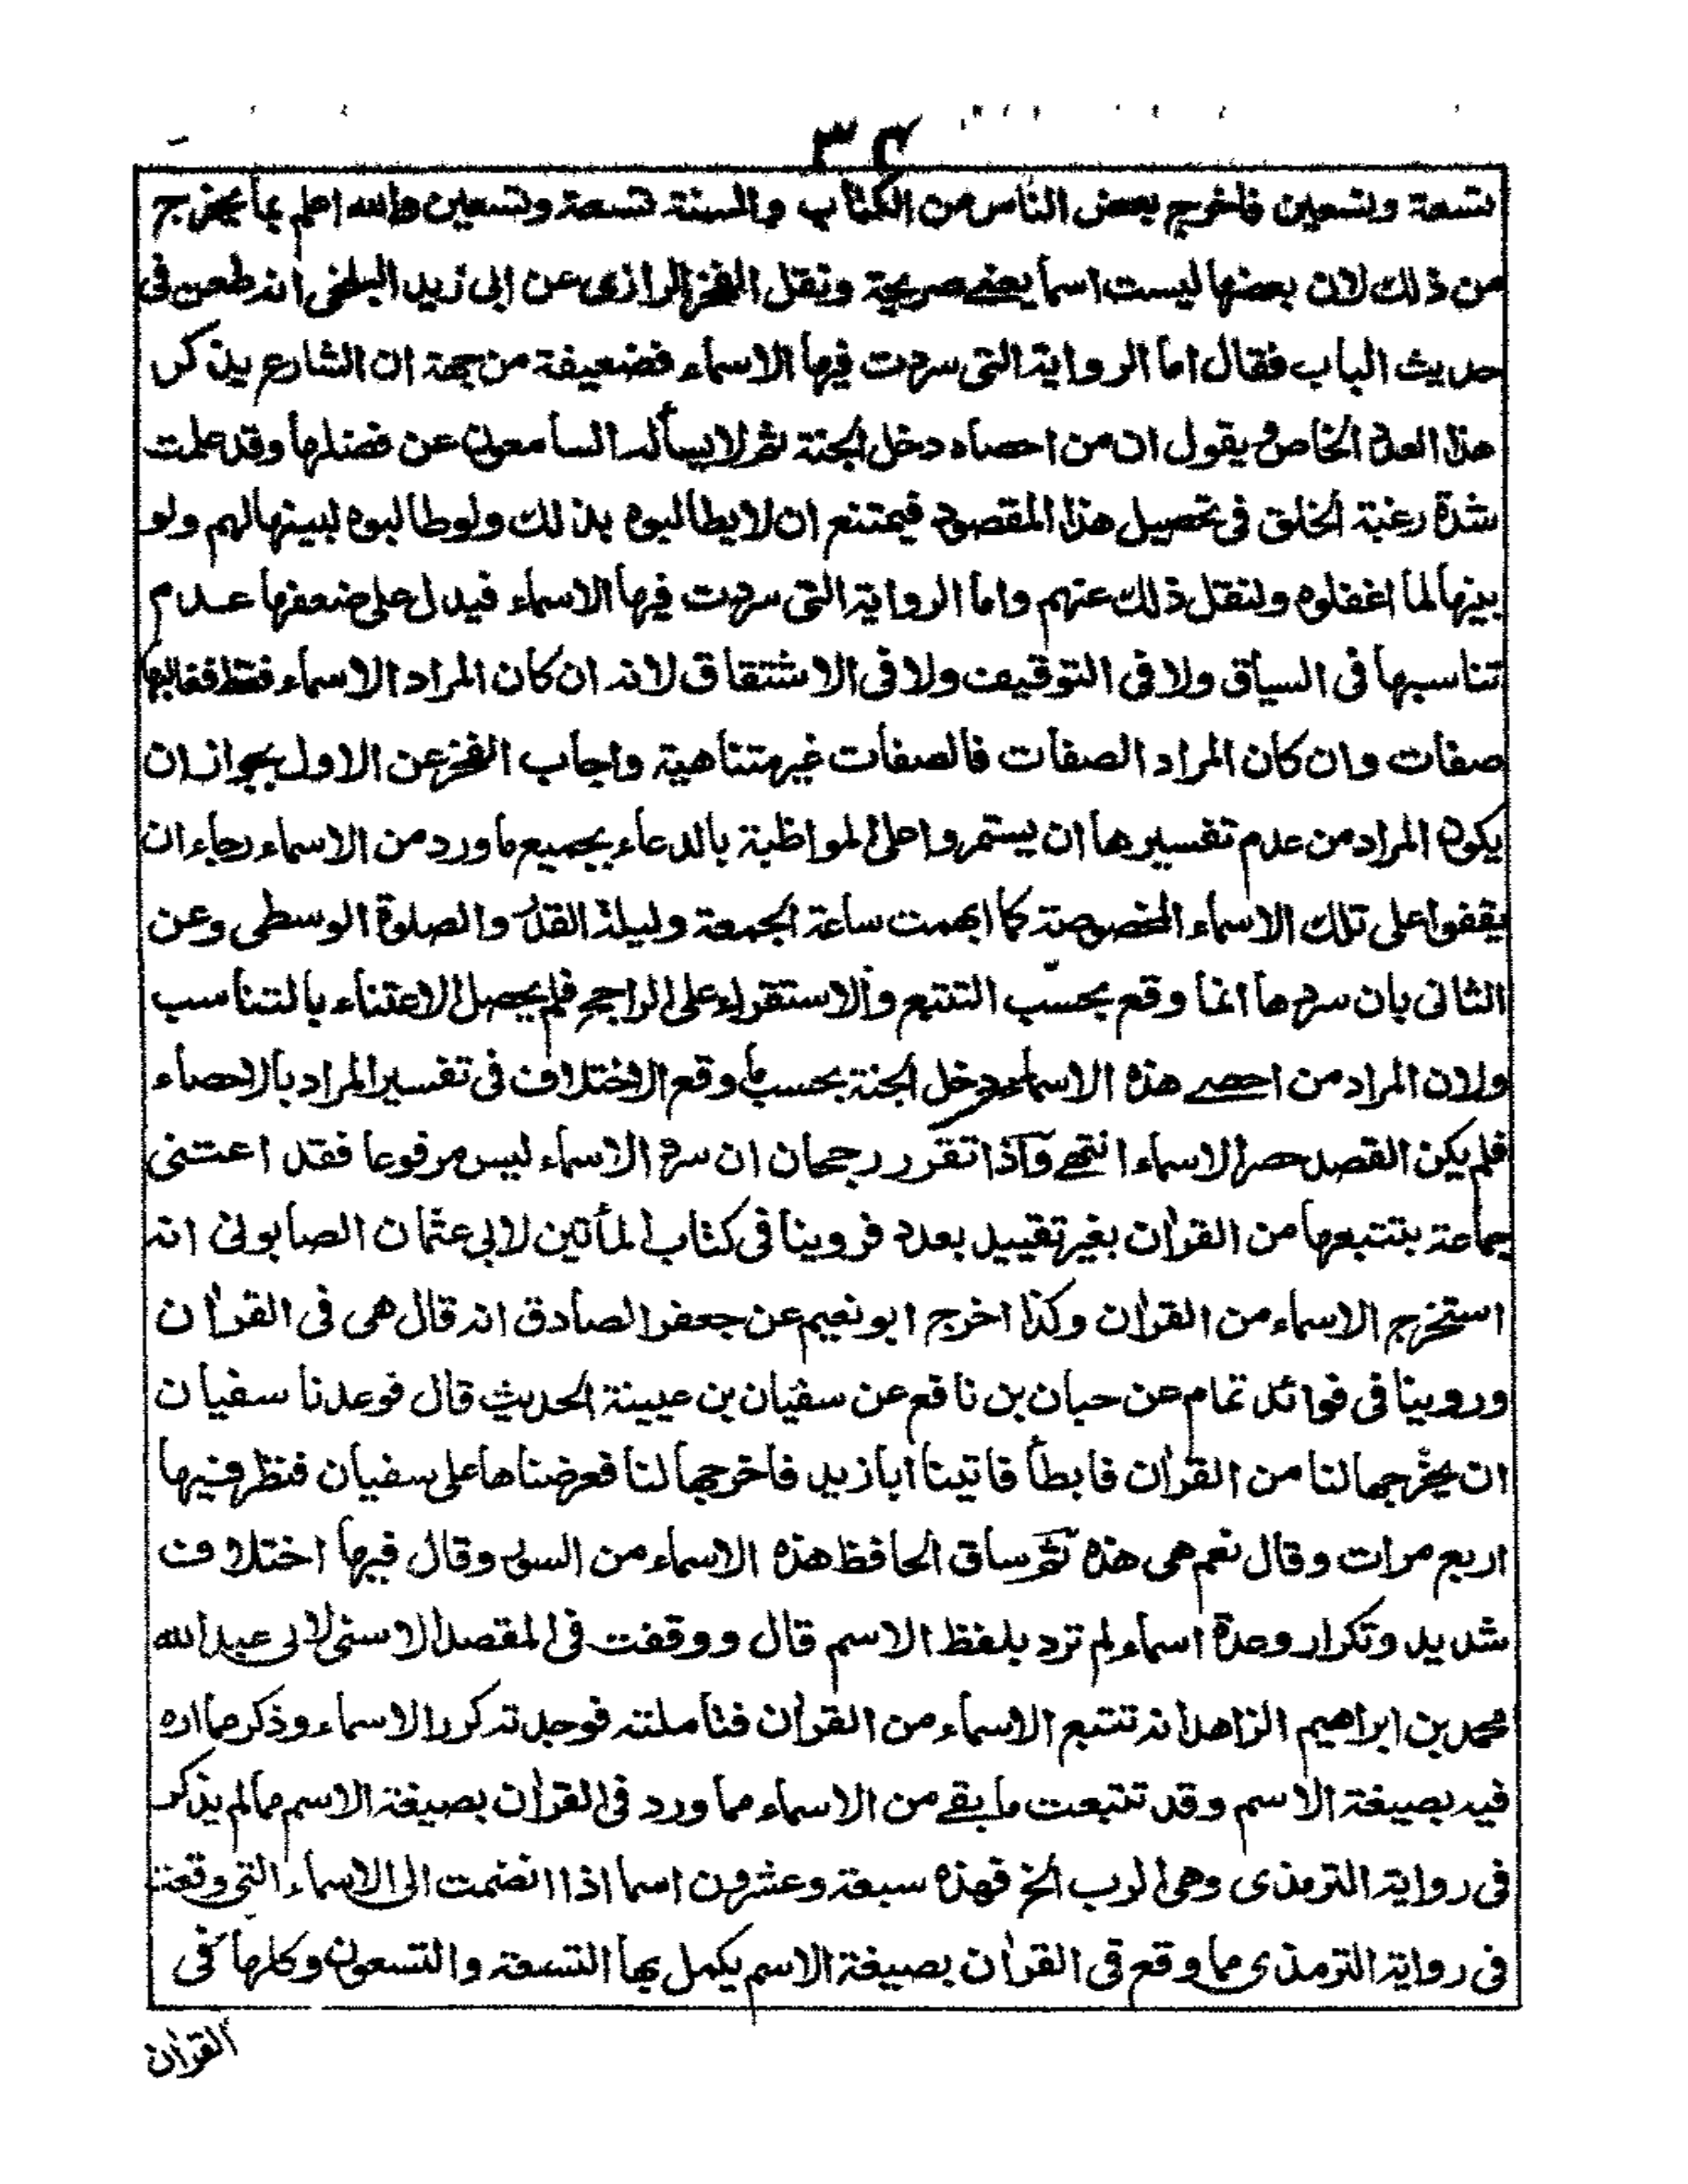 ٣٤
تسعة وتسعين فاخرج بعض الناس من الكتاب والسنة تسعة وتسعين والله اعلم بما يخرج
من ذلك لان بعضها ليست اسما يعنى صريحة ونقل الفخر الرازى عن ابى زيد البلخى انه طعن فى
حديث الباب فقال اما الرواية التى سردت فيها الاسماء فضعيفة من جهة ان الشارع يذكر
هذا العدد الخاص ويقول ان من احصاه دخل الجنة ثم لا يسأله السامعون عن فضلها وقد علمت
شدة رغبة الخلق فى تحصيل هذا المقصود فيمتنع ان لا يطالبوه بذلك ولو طالبوه لبينها لهم ولو
بينها لما اغفلوه ولنقل ذلك عنهم واما الرواية التى سردت فيها الاسماء فيدل على ضعفها عدم
تناسبها فى السياق ولا فى التوقيف ولا فى الاشتقاق لانه ان كان المراد الاسماء فقط فغالبها
صفات وان كان المراد الصفات فالصفات غير متناهية واجاب الفخر عن الاول بجواز ان
يكون المراد من عدم تفسيرها ان يستمروا على المواظبة بالدعاء بجميع ما ورد من الاسماء رجاء ان
يقفوا على تلك الاسماء المخصوصة كما ابهمت ساعة الجمعة وليلة القدر والصلوة الوسطى وعن
الثانى بان سردها انما وقع بحسب التتبع والاستقراء على الراجح فلم يحصل الاعتناء بالتناسب
ولان المراد من احصى هذه الاسماء دخل الجنة بحسب ما وقع الاختلاف فى تفسير المراد بالاحصاء
فلم يكن القصد حصر الاسماء انتهى وآذا تقرر رجحان ان سرد الاسماء ليس مرفوعا فقد اعتنى
جماعة بتتبعها من القرآن بغير تقييد بعدد فروينا فى كتاب المأتين لابى عثمان الصابونى انه
استخرج الاسماء من القرآن وكذا اخرج ابو نعيم عن جعفر الصادق انه قال هى فى القرآن
وروينا فى فوائد تمام عن حبان بن نافع عن سفيان بن عيينة الحديث قال فوعدنا سفيان
ان يخرجها لنا من القرآن فابطأ فاتينا ابا زيد فاخرجها لنا فعرضناها على سفيان فنظر فيها
اربع مرات وقال نعم هى هذه ثم ساق الحافظ هذه الاسماء من السور وقال فيها اختلاف
شديد وتكرار وعدة اسماء لم ترد بلفظ الاسم قال ووقفت فى المقصد الاسنى لابى عبد الله
محمد بن ابراهيم الزاهد انه تتبع الاسماء من القرآن فتأملته فوجدته كرر الاسماء وذكر مما اره
فيه بصيغة الاسم وقد تتبعت ما بقى من الاسماء مما ورد فى القرآن بصيغة الاسم مما لم يذكر
فى رواية الترمذى وهى الرب الخ فهذه سبعة وعشرون اسما اذا انضمت الى الاسماء التى وقعت
فى رواية الترمذى مما وقع فى القرآن بصيغة الاسم يكمل بها التسعة والتسعون وكلها فى
القرآن